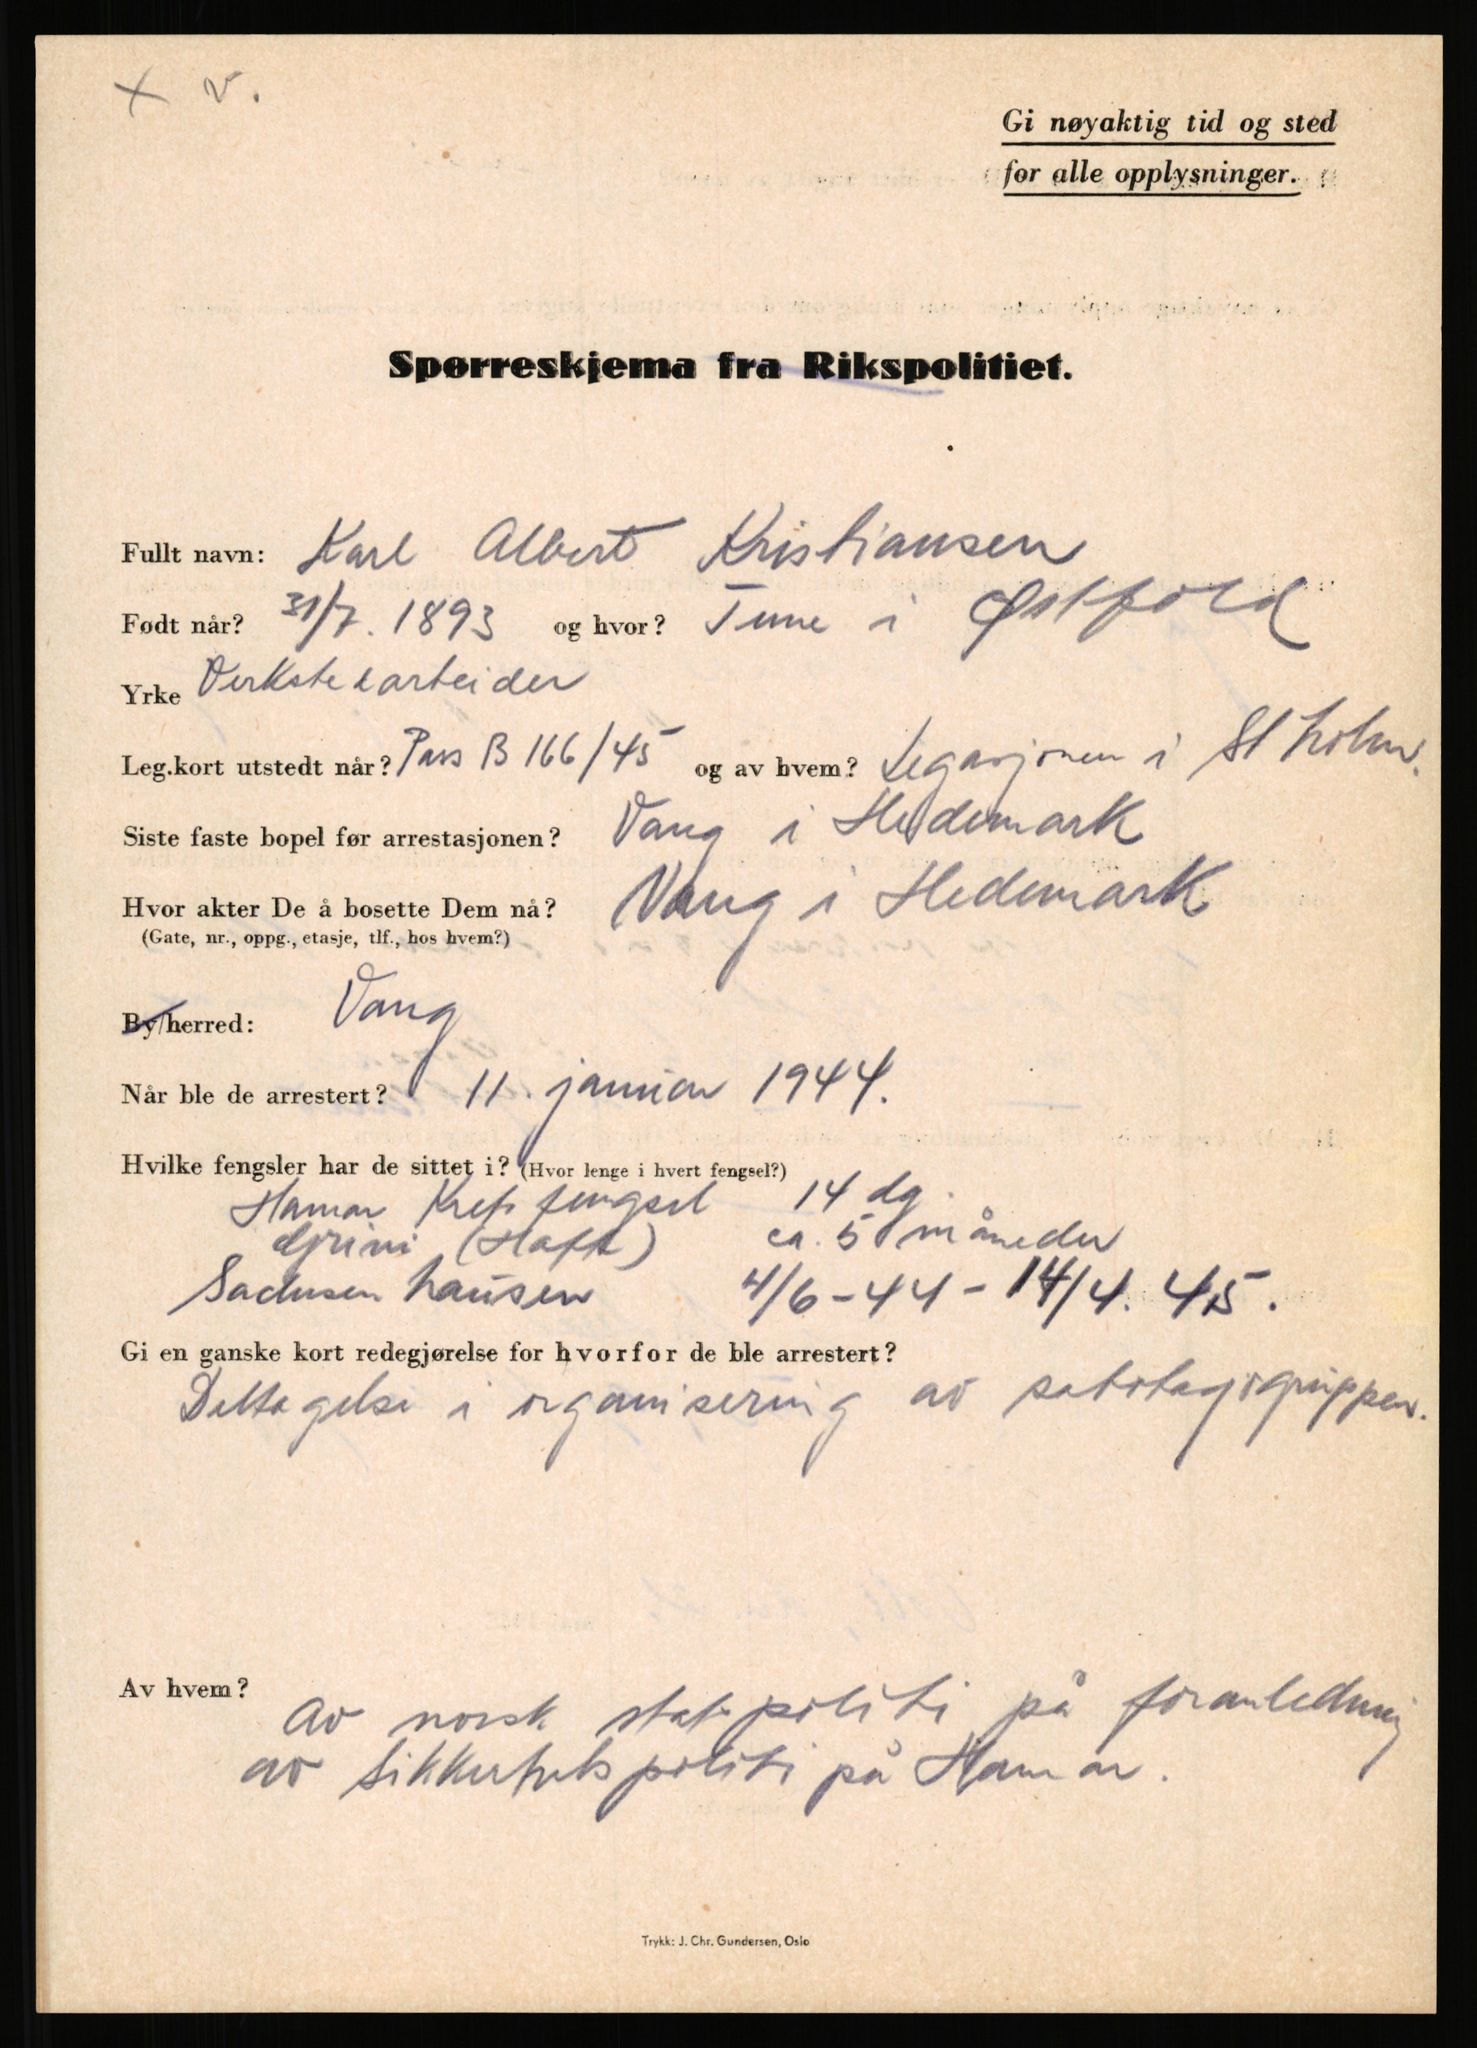 + v.
Gi nøyaktig tid og sted
for alle opplysninger.
Spørreskjema fra Rikspolitiet.
Fullt navn: Karl Albert Kristiansen
Født når? 31/7. 1893 og hvor? Tune i Østfold
Yrke Verkstedarbeider
Leg.kort utstedt når? Pass B 166/45 og av hvem? Legasjonen i St holm.
Siste faste bopel før arrestasjonen? Vang i Hedemark
Hvor akter De å bosette Dem nå? Vang i Hedemark
(Gate, nr., oppg., etasje, tlf., hos hvem?)
By/herred: Vang
Når ble de arrestert? 11. januar 1944.
Hvilke fengsler har de sittet i? (Hvor lenge i hvert fengsel?)
Hamar Krets fengsel 14 dg.
Grini (Haft) ca. 5 måneder
Sachsenhausen 4/6-44-14/4.45.
Gi en ganske kort redegjørelse for hvorfor de ble arrestert?
Deltagelse i organisering av sabotasjegrupper.
Av hvem?
Av norsk statspoliti på foranledning
av Sikkerhetspoliti på Hamar.
Trykk: J. Chr. Gundersen, Oslo